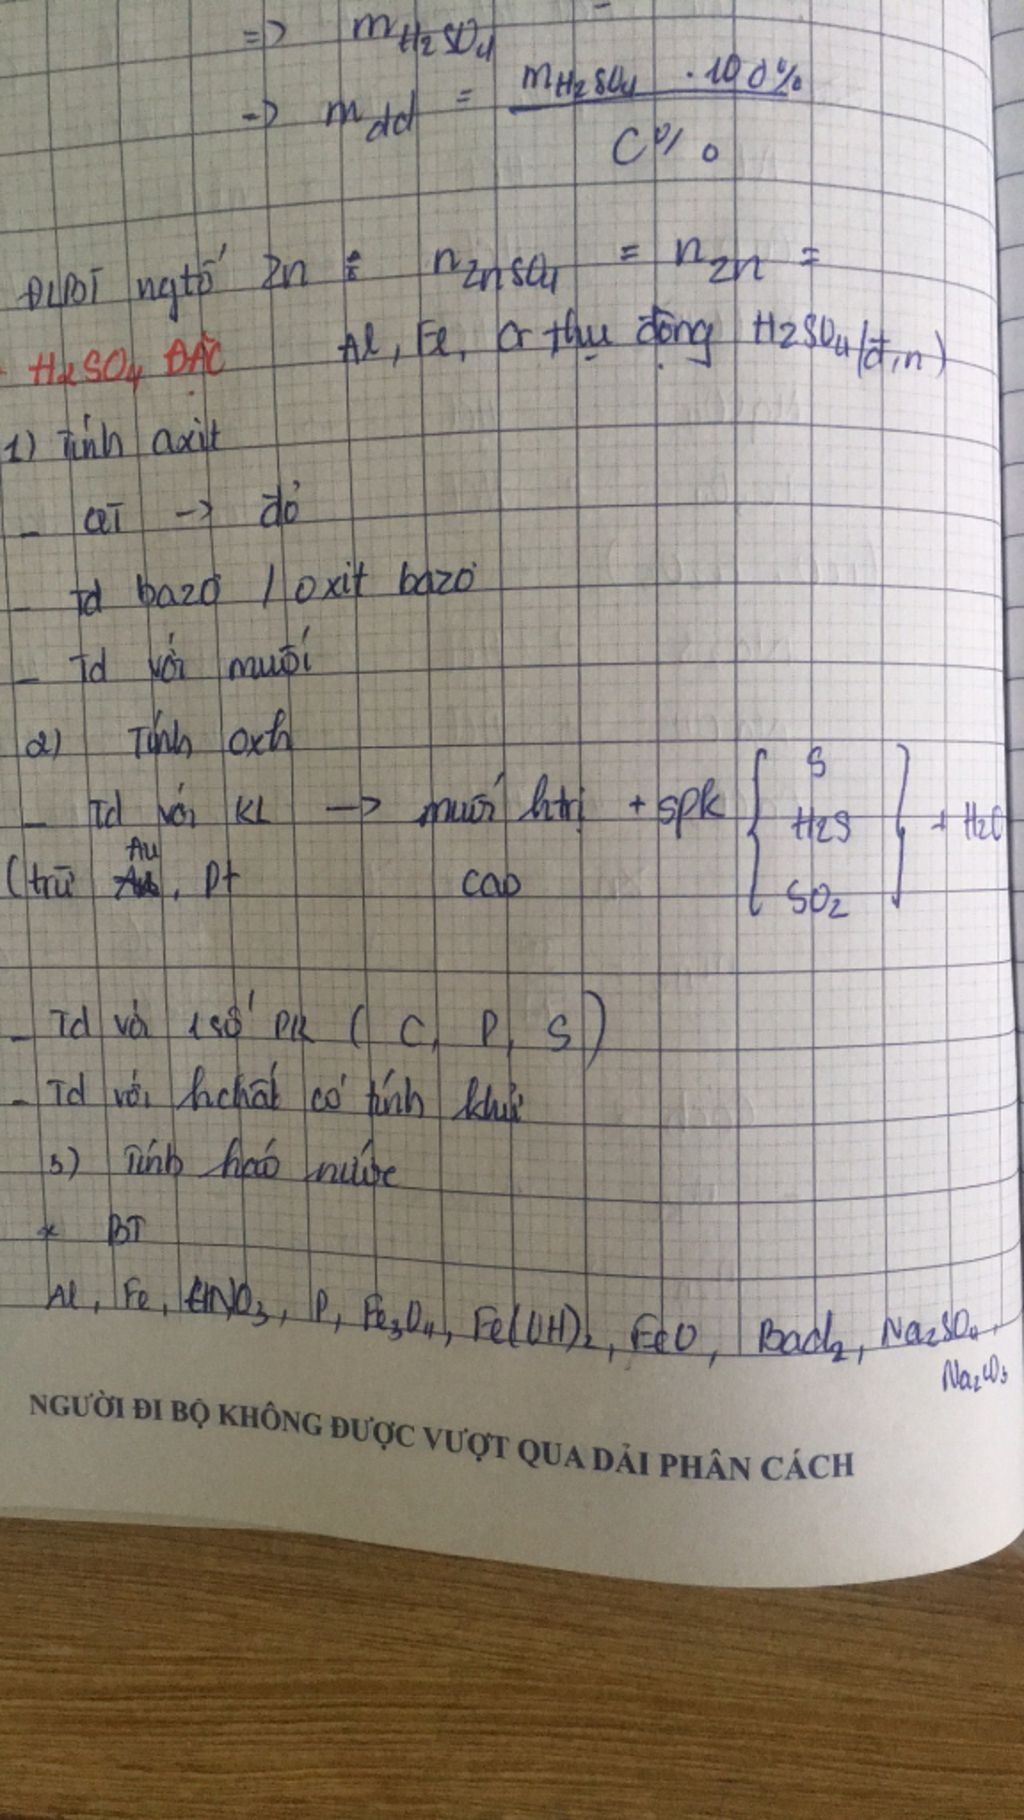 => mH2SO4
-> mdd = mH2SO4 . 100% / C%
ĐLBT ngtố Zn : nZnSO4 = nZn =
- H2SO4 ĐẶC Al, Fe, Cr thụ động H2SO4(đ,n)
1) Tính axit
- QT -> đỏ
- Td bazơ / oxit bazơ
- Td với muối
2) Tính oxh
- Td với KL -> muối htrị + spk { S H2S SO2 } + H2O
(trừ Au, Pt cao
- Td với 1 số PK ( C, P, S )
- Td với hchất có tính khử
3) Tính háo nước
* BT
Al, Fe, P, Fe3O4, Fe(OH)2, FeO, BaCl2, Na2SO4,
Na2CO3
NGƯỜI ĐI BỘ KHÔNG ĐƯỢC VƯỢT QUA DẢI PHÂN CÁCH